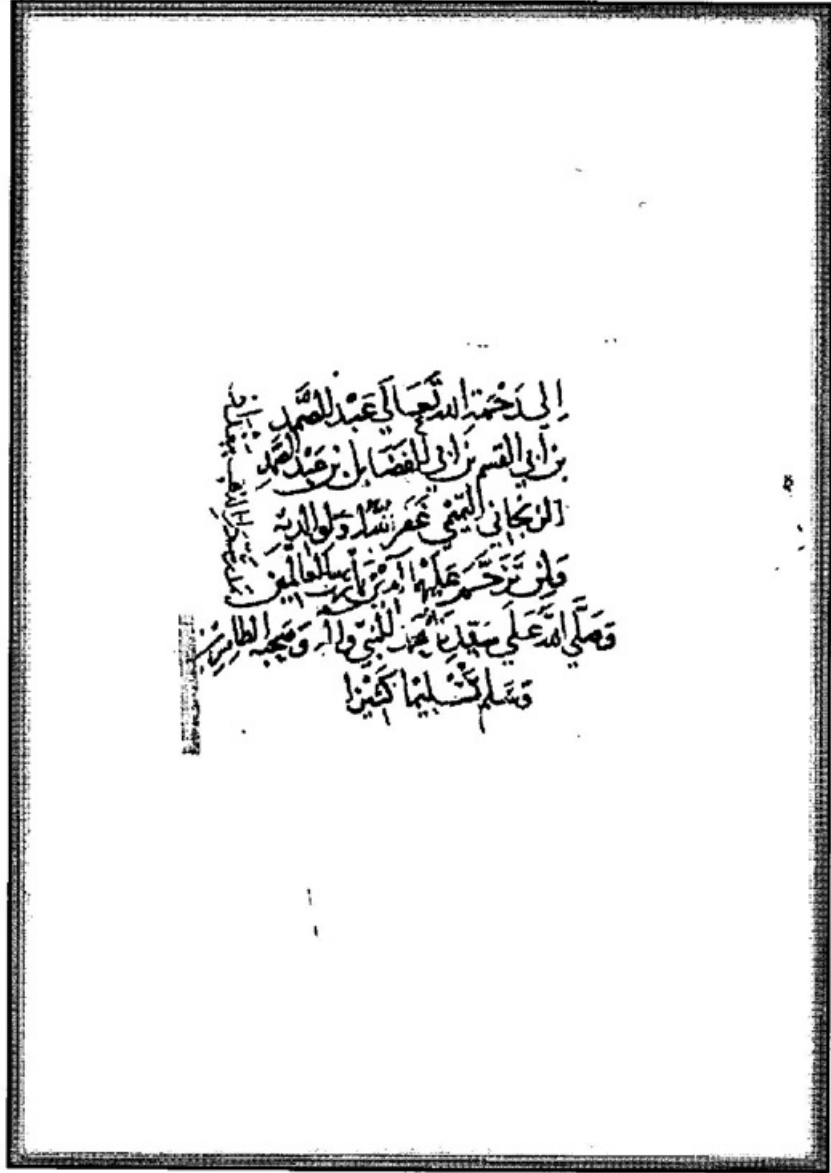 إلى رَحْمَةِ الله تَعَالَى عَبْدُ الصَّمَدِ
بن أبي القسم بن أبي الفضَايل بن عَبْدِ الصَّمَدِ
التميمي غَفَر الله لهُ ولوالديه
وَلمن تَرَحَّمَ عليهما آمين يا رب العالمين
وَصَلَّى الله عَلَى سَيِّدِنَا محمد النبي وآله وَصحبه الطاهرين
وَسَلم تَسْليمًا كَثيْرًا